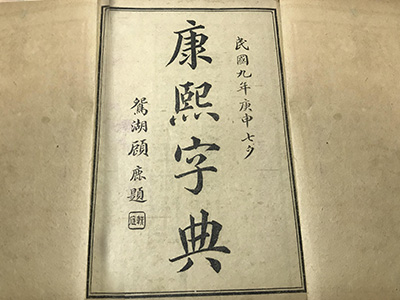 民國九年庚申七夕
康熙字典
鴛湖顧康題